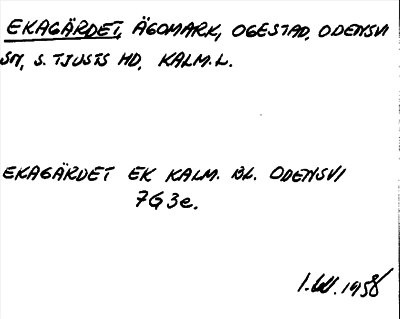 EKAGÄRDET, ÄGOMARK, OGESTAD, ODENSVI
SN, S. TJUSTS HD, KALM.L.
EKAGÄRDET EK KALM. BL. ODENSVI
7G3e.
I.W. 1958